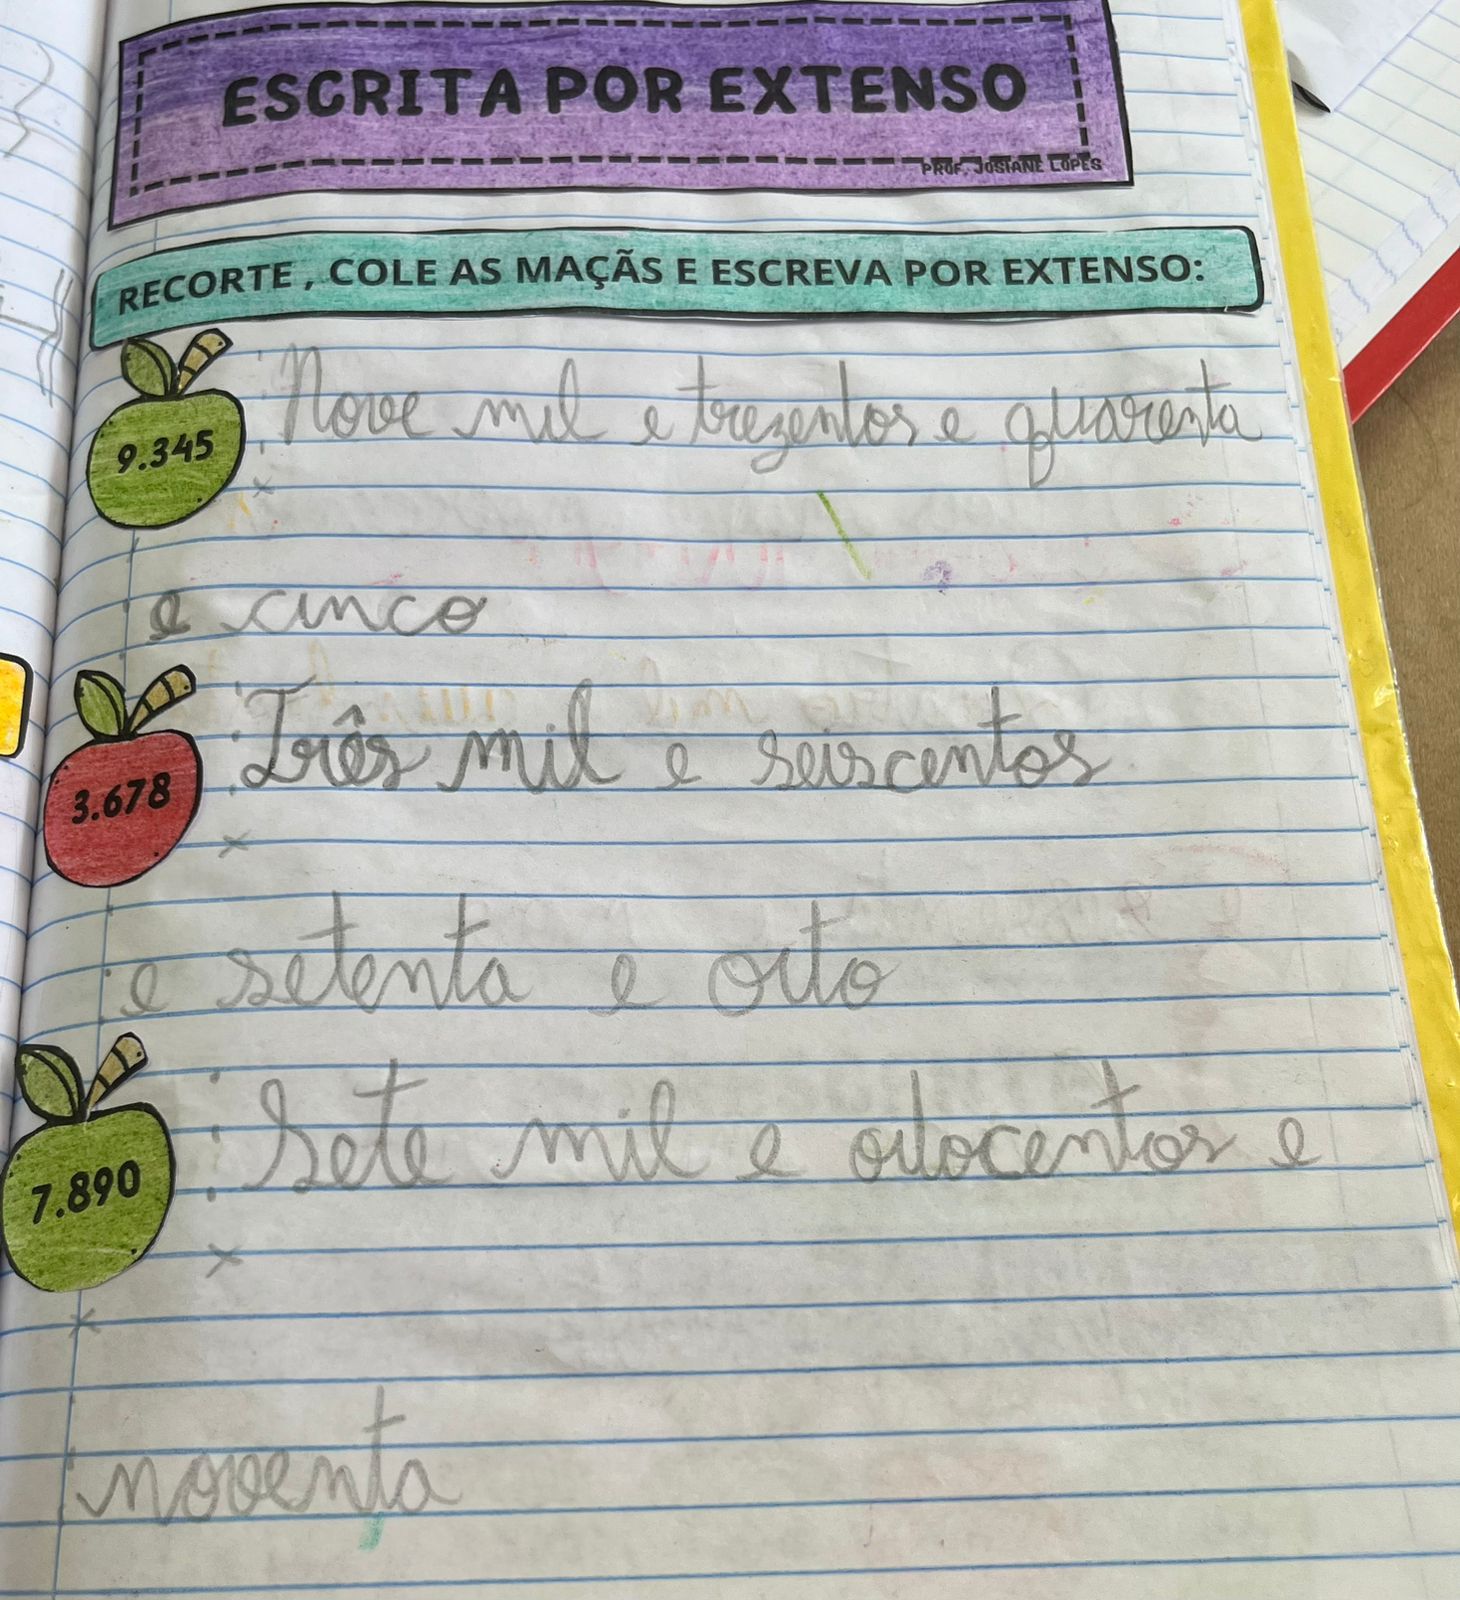 ESCRITA POR EXTENSO
PROF. JOSIANE LOPES
RECORTE, COLE AS MAÇÃS E ESCREVA POR EXTENSO:
9.345 Nove mil e trezentos e quarenta
e cinco
3.678 Três mil e seiscentos
e setenta e oito
7.890 Sete mil e oitocentos e
noventa